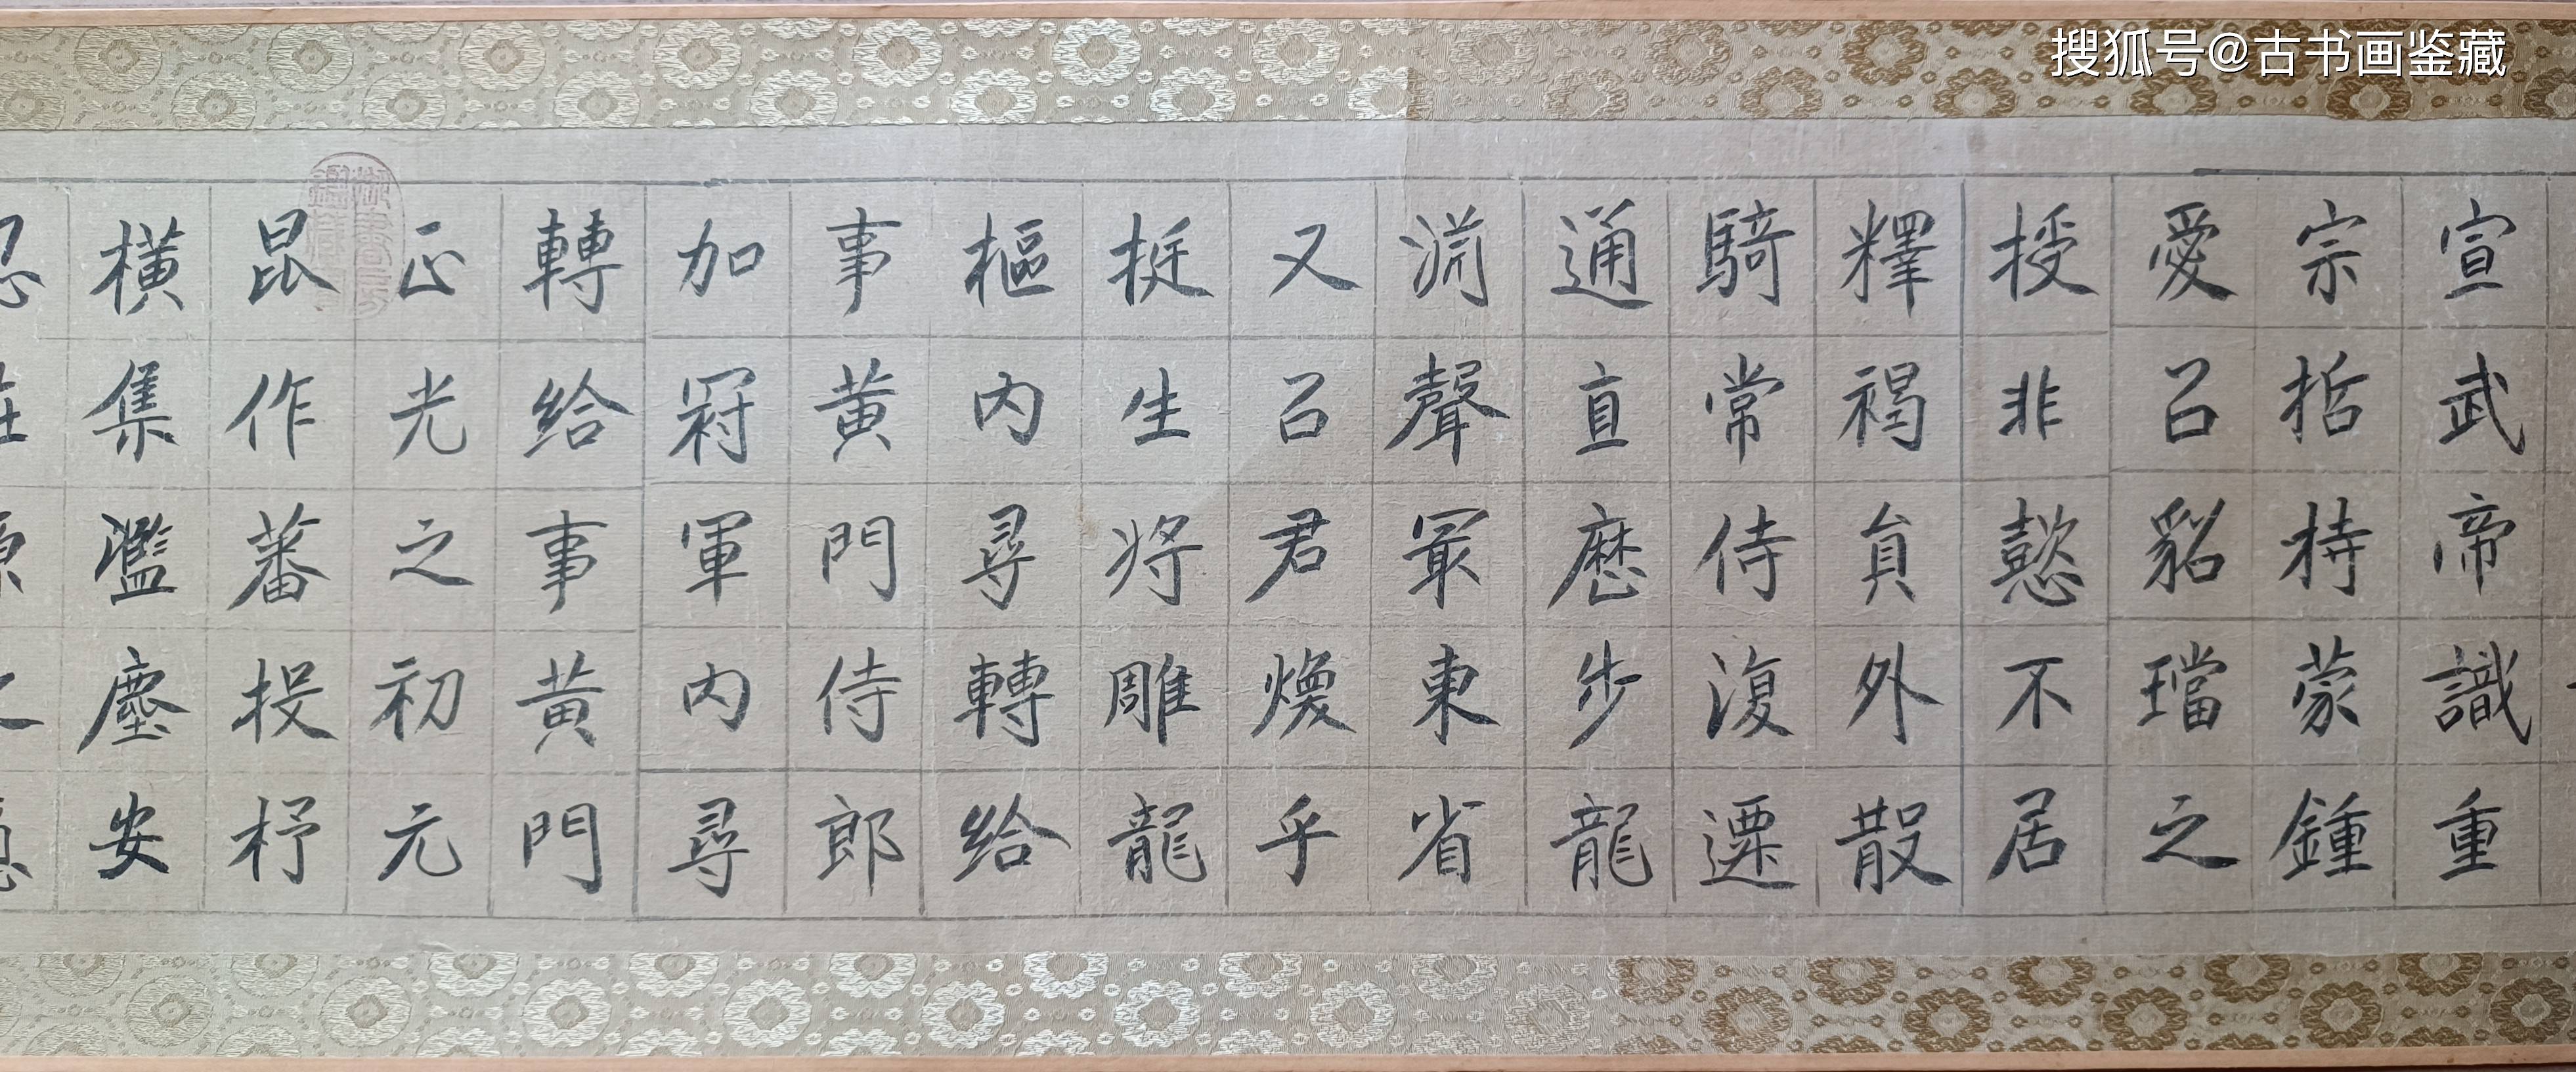 搜狐号@古书画鉴藏
宣武帝識重
宗哲持蒙鍾
愛召貂璫之
授非懿不居
釋褐貟外散
騎常侍復遷
通直歷步龍
淵聲冣東省
又召君煥乎
挺生將雕龍
樞內尋轉給
事黃門侍郎
加冠軍內尋
轉給事黃門
正光之初元
昆作蕃投杼
橫集濫塵安